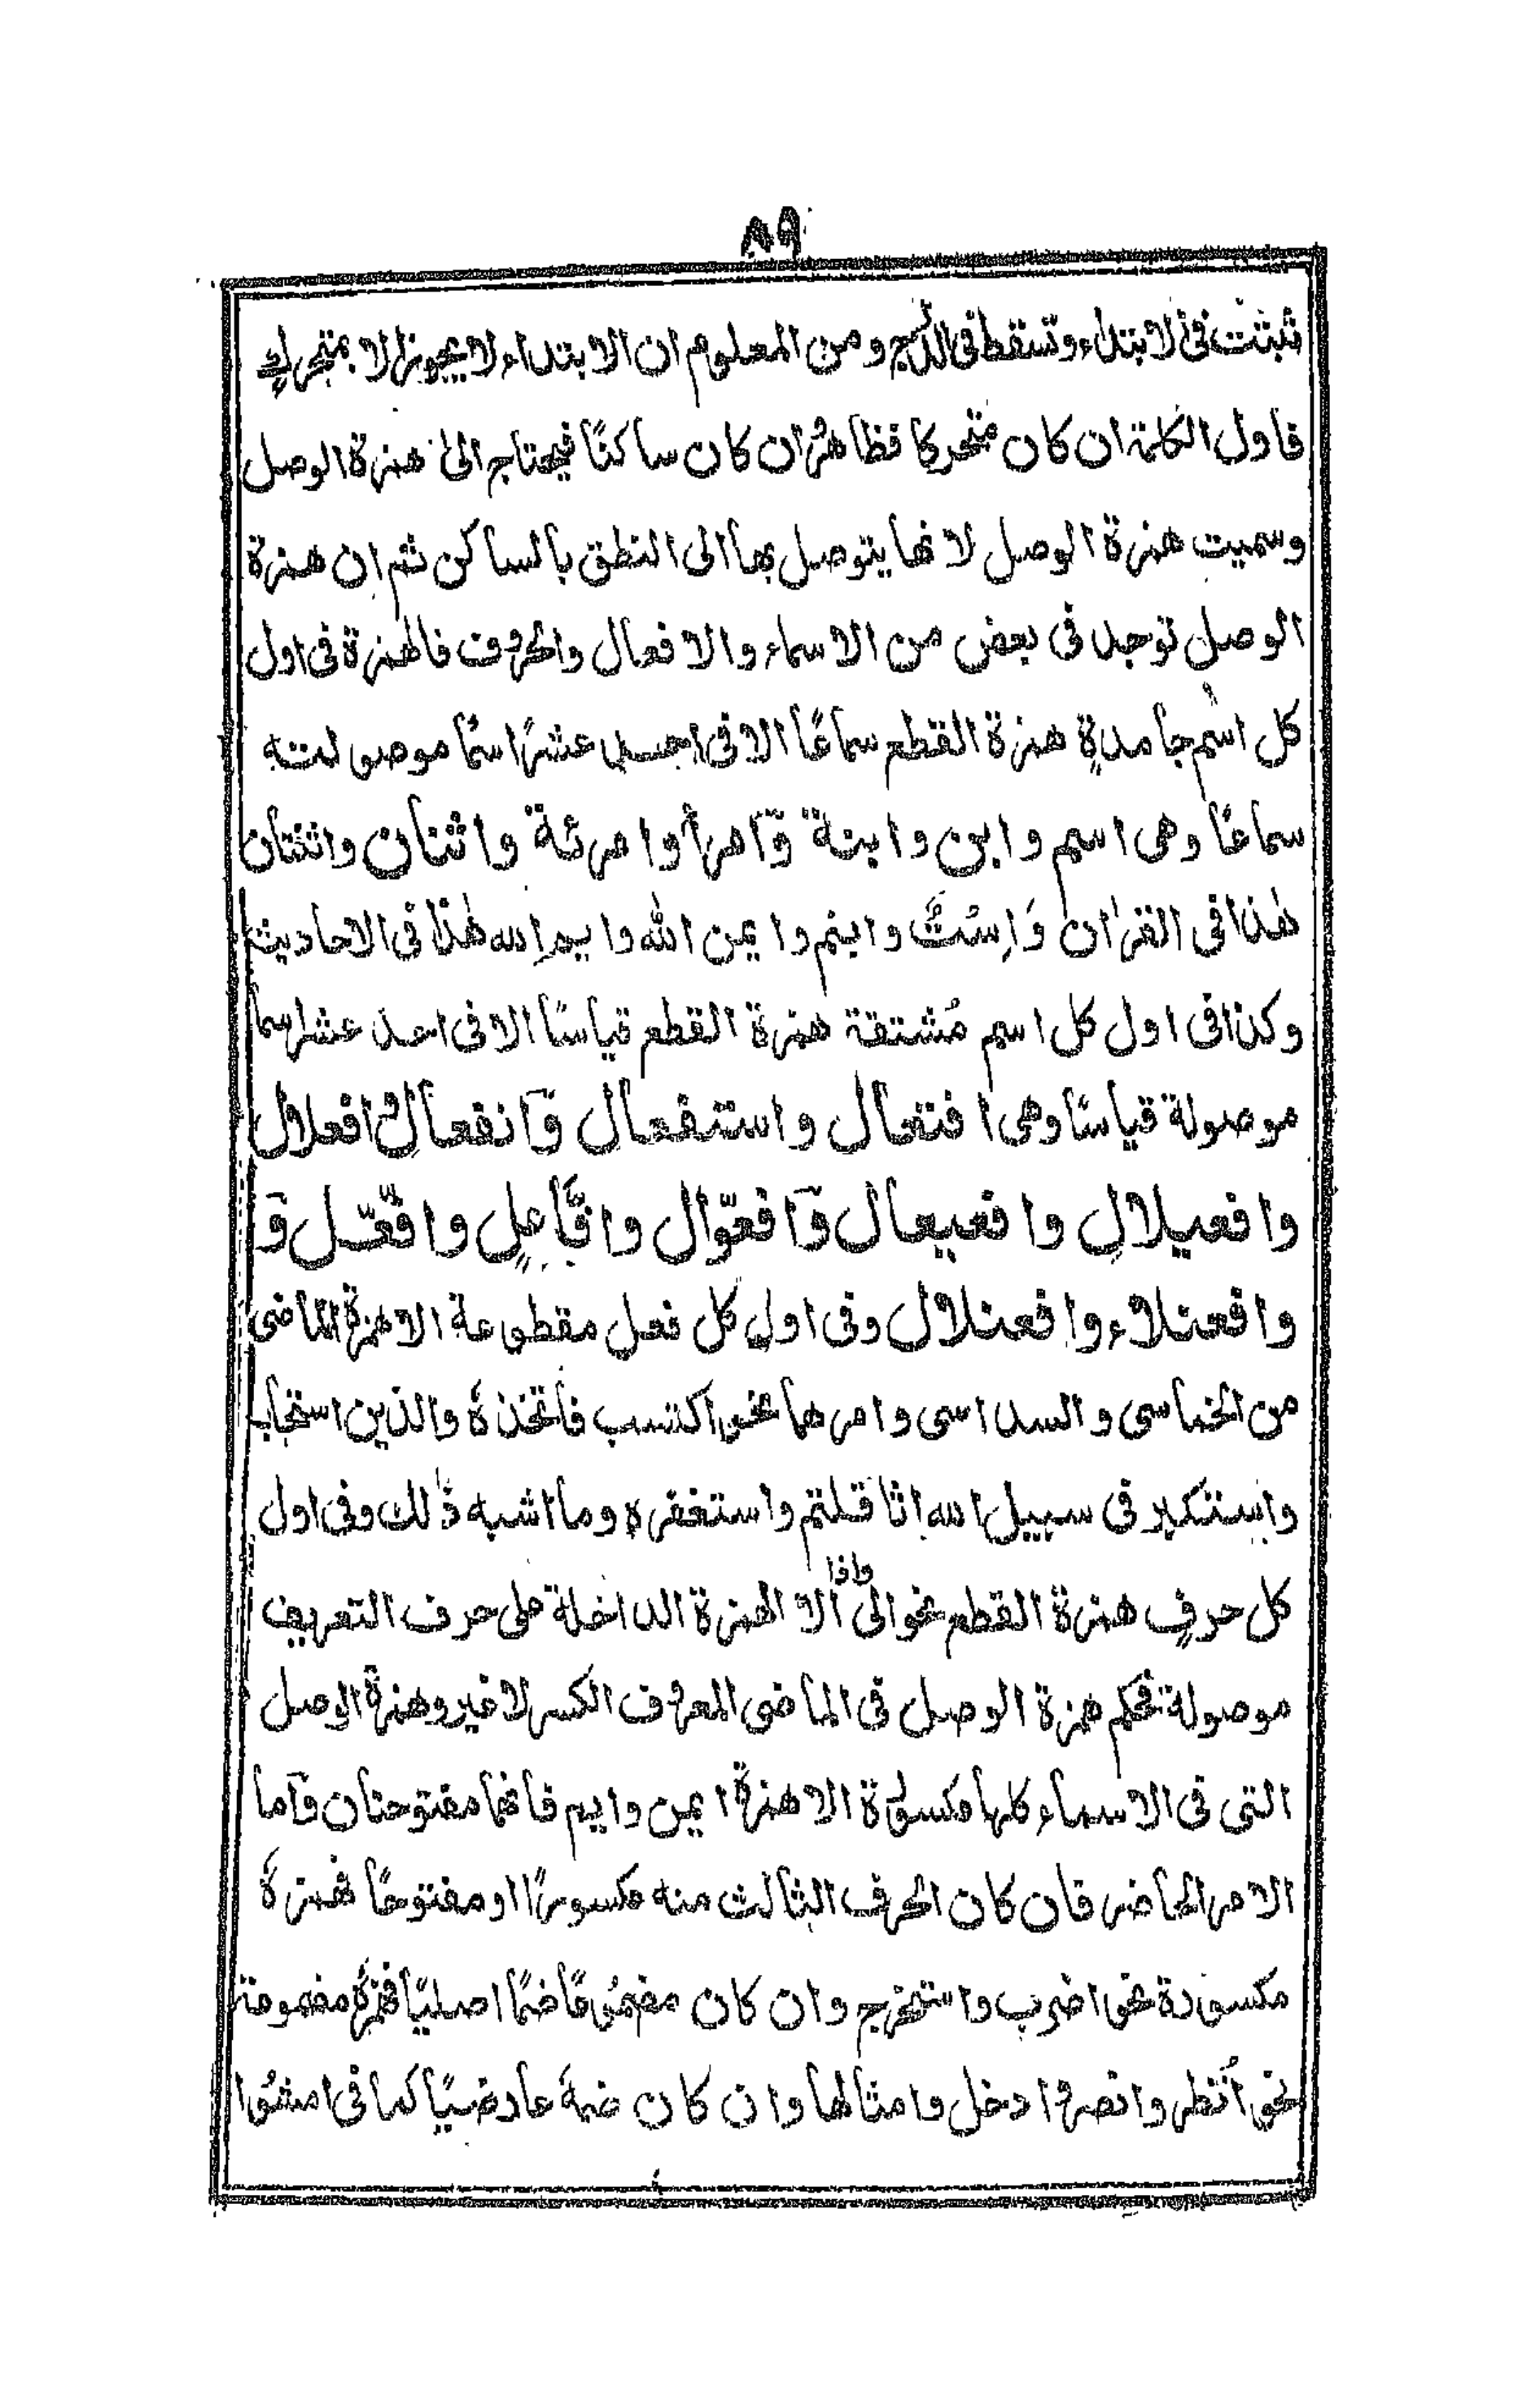 ٨٩
تثبت فى الابتداء وتسقط فى الدّرج ومن المعلوم ان الابتداء لا يجوز الا بمتحركٍ
فاول الكلمة ان كان متحركا فظاهرٌ وان كان ساكنًا فيحتاج الى همزة الوصل
وسميت همزة الوصل لانها يتوصل بها الى النطق بالساكن ثم ان همزة
الوصل توجد فى بعض من الاسماء والافعال والحروف فالهمزة فى اول
كل اسم جامدةٍ همزة القطع سماعًا الا فى احد عشرًا اسمًا موصولته
سماعًا وهى اسم وابن وابنة وّامرأ وامرئة واثنان واثنتان
هٰذا فى القراٰن وَاِسْتٌ وابنم وايمن الله وايم الله هٰذا فى الاحاديث
وكذا فى اول كل اسم مُشتقة همزة القطع قياسًا الا فى احد عشر اسما
موصولة قياسًا وهى افتعال واستفعال وَانفعالٌ وافعلال
وافعيلالِ وافعيعال وَّافعوّال وافّاعلٍ وافّعّل وَ
وافعنلاء وافعنلال وفى اول كل فعل مقطوعة الا همزة الماضى
من الخماسى والسداسى وامرهما نحو اكتسب فاتخذهُ والذين استجاب
واستكبر فى سبيل الله اثاقلتم واستغفره وما اشبه ذٰلك وفى اول
كل حرفٍ همزة القطع نحو الى واذا الا الهمزة الداخلة على حرف التعريف
موصولة فحكم همزة الوصل فى الماضى المعروف الكسر لا غير وهمزة الوصل
التى فى الاسماء كلها مكسورة الا همزة ايمن وايم فانهما مفتوحتان وَاما
الامر الحاضر فان كان الحرف الثالث منه مكسورًا او مفتوحًا فهمزهٗ
مكسورة نحو اضرب واستخرج وان كان مضمومًا ضمًا اصليًا فهمزهٗ مضمومة
نحو اُنظر وانصر وادخل وامثالها وان كان ضمهٗ عارضيًا كما فى امشُوا